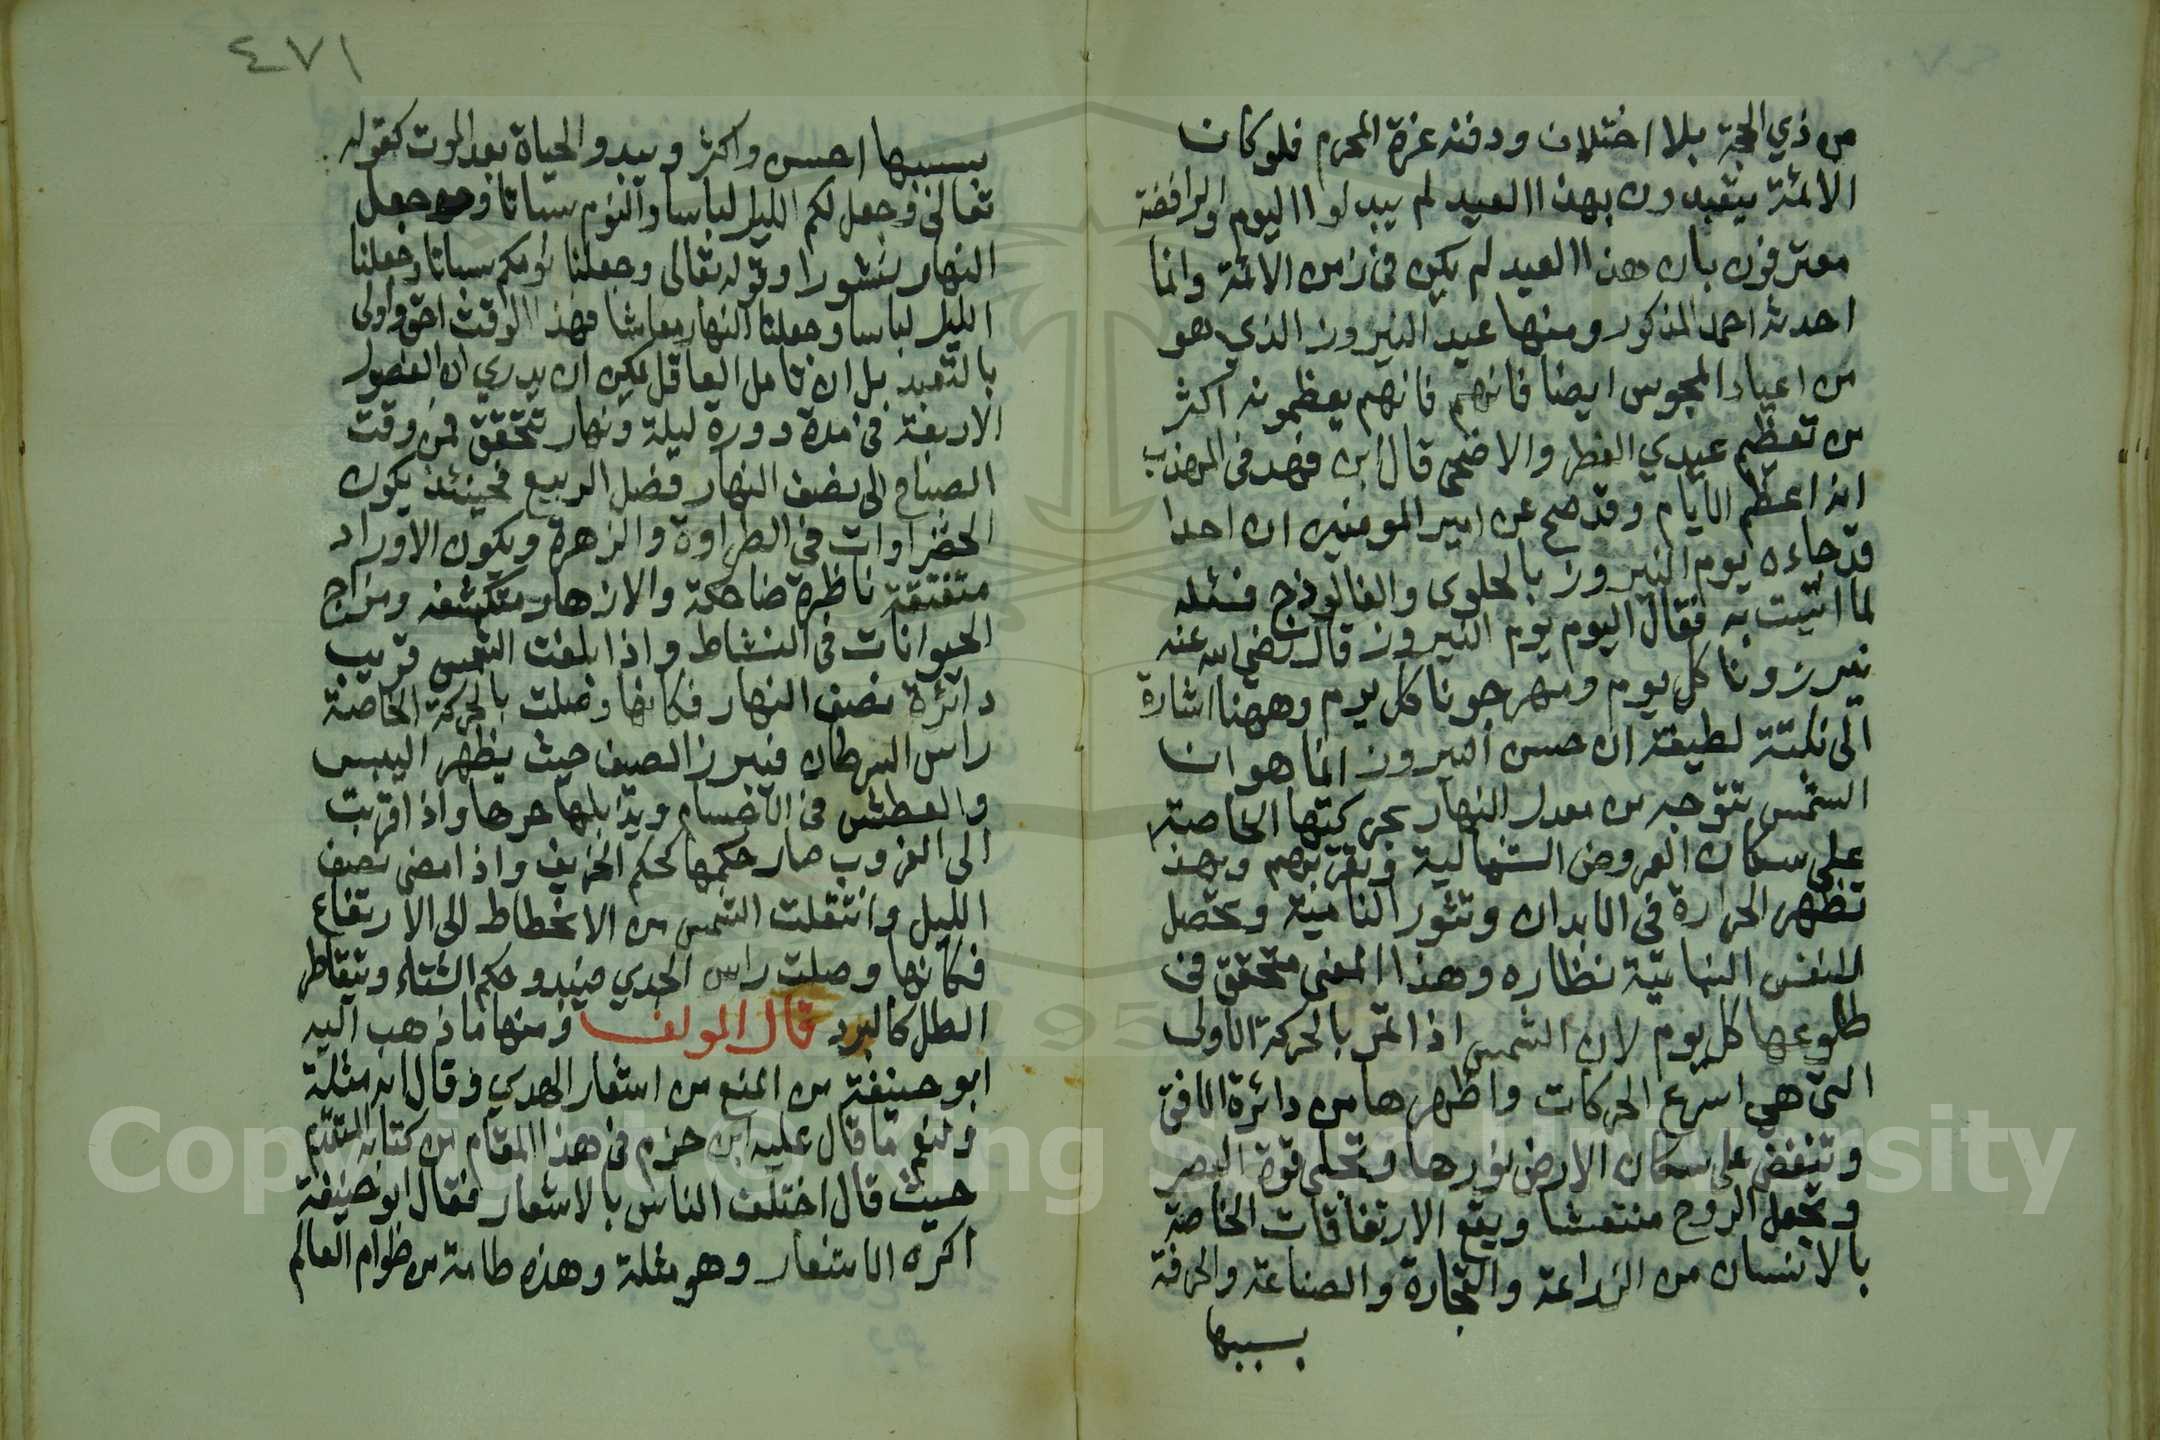 من ذي الحجة بلا اختلاف ودفنه غرة المحرم فلو كان
الائمة يتعبدون بهذا العيد لم يبدلوا اليوم والرافضة
معترفون بان هذا العيد لم يكن في زمن الائمة وانما
احدثه احمد المذكور ومنها عيد النيروز الذي هو
من اعياد المجوس ايضا فانهم فانهم يعظمونه اكثر
من تعظم عيدي الفطر والاضحى قال ابن فهد في المهذب
انه اعظم الايام وقد صح عن امير المومنين ان احدا
قد جاءه يوم النيروز بالحلوى والفالوذج فسئله
لما اتيت به فقال اليوم يوم النيروز قال رضي الله عنه
نيرزونا كل يوم ومهرجونا كل يوم وههنا اشارة
الى نكتة لطيفة ان حسن النيروز انما هو ان
الشمس تتوجه من معدل النهار بحركتها الخاصة
على سكان العروض الشمالية وتقربهم وبهذا
تظهر الحرارة في الابدان وتثور النامية وتحصل
للنفس النباتية نظاره وهذا المعنى متحقق في
طلوعها كل يوم لان الشمس اذا تمر بالحركة الاولى
التي هي اسرع الحركات واظهرها من دائرة الافق
وتنفض على سكان الارض نورها وتجلى قوة البصر
وتجعل الروح منتعشا ويقع الارتفاقات الخاصة
بالانسان من الزراعة والتجارة والصناعة والحرفة
بسببها
٤٧١
بسببها احسن واكثر ويبدو الحياة بعد الموت كقوله
تعالى وجعل لكم الليل لباسا والنوم سباتا وجعل
النهار نشورا وقوله تعالى وجعلنا نومكم سباتا وجعلنا
الليل لباسا وجعلنا النهار معاشا فهذا الوقت احق واولى
بالتعيد بل ان تامل العاقل يمكن ان يدري ان الفصول
الاربعة في مدة دورة ليلة ونهار تتحقق فمن وقت
الصباح الى نصف النهار فصل الربيع فحينئذ يكون
الخضراوات في الطراوة والزهرة ويكون الاوراد
متفتقة ناظرة ضاحكة والازهار متكشفه ومزاج
الحيوانات في النشاط واذا بلغت الشمس قريب
دائرة نصف النهار فكانها وصلت بالحركة الخاصة
راس السرطان فيبرز الصيف حيث يظهر اليبس
والعطش في الاجسام ويذابلها حرها واذ اقربت
الى الغروب صار حكمها كحكم الخريف واذا مضى نصف
الليل وانتقلت الشمس من الانحطاط الى الارتفاع
فكانها وصلت راس الجدي فيبدو حكم الشتاء ويتقاطر
الطل كالبرد قال المولف ومنها ما ذهب اليه
ابو حنيفة من المنع من اشعار الهدي وقال انه مثلة
ونعم ما قال عليه ابن حزم في هذا المقام من كتابه المتقدم
حيث قال اختلف الناس بالاشعار فقال ابو حنيفة
اكره الاشعار وهو مثلة وهذه طامة من طوام العالم
Copyright © King Saud University
1957